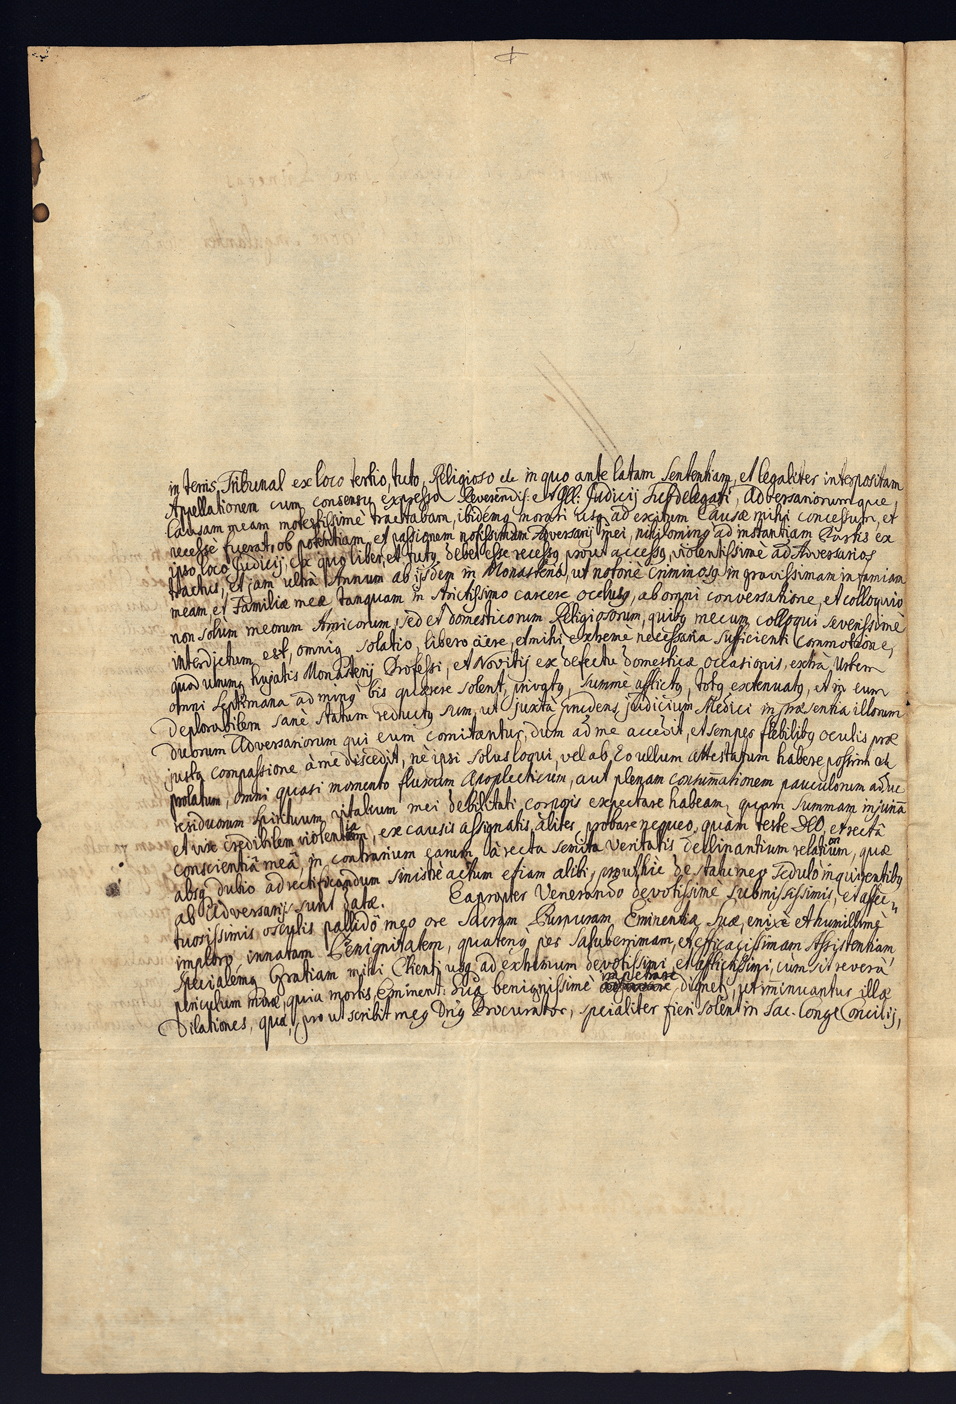 in terris Tribunal ex loco tertio, tuto, Religioso etc in quo ante latam Sententiam, et legaliter interpositam
Appellationem cum consensu expresso Reverendis: et Ill: Judicij Subdelegati, Adversariorumque
Causam meam modestissimè tractabam, ibidemq morari usq ad exitum Causæ mihi concessum, et
necesse fuerat, ob potentiam, et passionem notissimam Adversarij mei, nihilominq ad instantiam Partis ex
ipso loco Judicij, ex quo liber, et tutq debet esse recessq, prout accessq, violentissimè ad Adversarios
tractus, et jam ultrà Annum ab ijsdem in Monasterio, ut notoriè Criminosq in gravissimam infamiam
meam, et Familiæ meæ tanquam in strictissimo carcere oclusq, ab omni conversatione, et colloquio
non solùm meorum Amicorum, sed et domesticorum Religiosorum, quibq mecum colloqui severissimè
interdictum est, omniq solatio, libero aëre, et mihi extremè necessaria sufficienti Commotione,
quod unumq hujatis Monasterij Professi, et Novitij ex defectu domesticæ occasionis, extra Urbem
omni Septimana ad minq bis quærere solent, privatq, summè afflictq, totq extenuatq, et in eum
deplorabilem sanè statum reductq sum, ut juxtà prudens judicium Medici in præsentia illorum
duorum Adversariorum qui eum comitantur, dum ad me accedit, et semper flebilibq oculis præ
justa compassione à me discedit, nè ipsi solus loqui, vel ab Eo ullum attestatum habere possim
prolatum, omni quasi momento fluxum Apoplecticum, aut plenam consumationem pauculorum adhuc
residuorum Spirituum vitalium mei debilitati corporis expectare habeam, quam summam injuriã
et vix credibilem violentiam, ex causis assignatis, aliter probare nequeo, quàm teste DEO, et rectà
conscientiâ meâ, in contrarium earum à recta semita Veritatis declinantium relationum, quæ
absq dubio ad rectificandum sinistrè actum etiam alibi, prout hic de statu meo sedulò inquirentibq
ab Adversarijs sunt datæ. Eapropter Venerando devotissimè submississimis, et affec-
tuosissimis osculis pallidô meo ore Sacram Purpuram Eminentiæ Suæ, enixè et humillimè
imploro innatam Benignitatem, quatenq per Saluberrimam, et efficacissimam Assistentiam,
specialemq Gratiam mihi Clienti usq ad extremum devotissimi, et afflictissimi, cùm sit reverà
periculum moræ, quia mortis, Eminent: Sua benignissimè impetrare dignet, ut minuantur illæ
Dilationes, quæ, prout scribit meq Dnq Procurator, specialiter fieri solent in Sac. Congr Concilij,